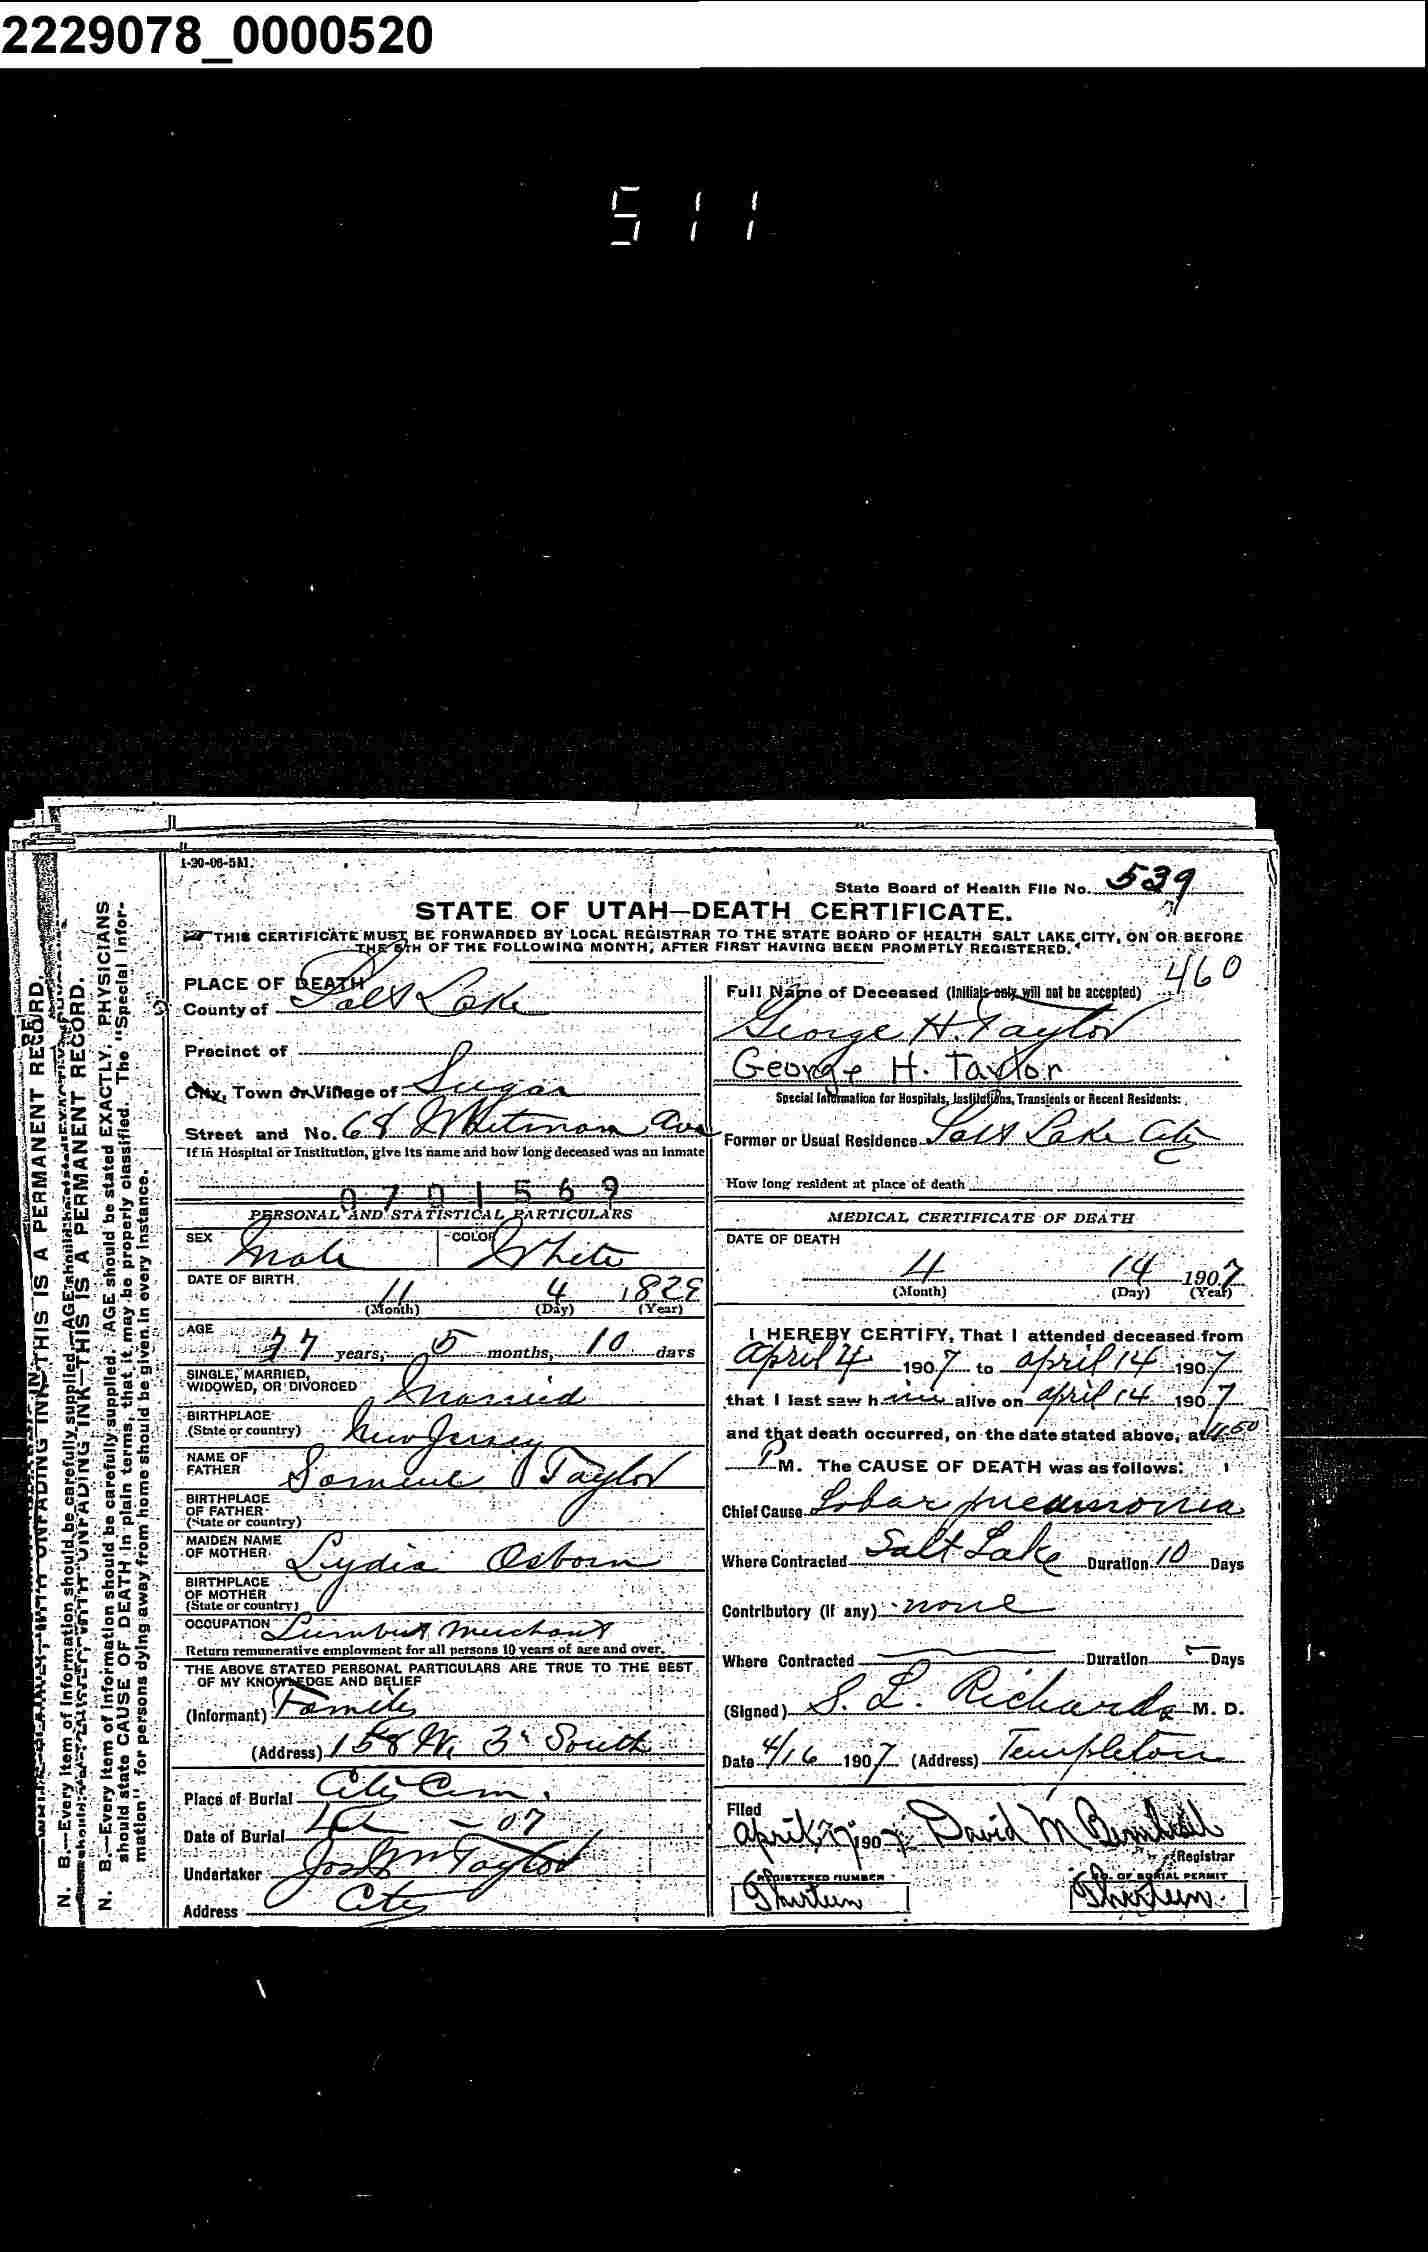 2229078_0000520
511
1-30-06-5M.
State Board of Health File No. 539
STATE OF UTAH—DEATH CERTIFICATE.
THIS CERTIFICATE MUST BE FORWARDED BY LOCAL REGISTRAR TO THE STATE BOARD OF HEALTH SALT LAKE CITY, ON OR BEFORE
THE 5TH OF THE FOLLOWING MONTH, AFTER FIRST HAVING BEEN PROMPTLY REGISTERED.
PLACE OF DEATH
County of Salt Lake
Precinct of
City, Town or Village of Sugar
Street and No. 68 Whitman Ave
If in Hospital or Institution, give its name and how long deceased was an inmate
0701569
PERSONAL AND STATISTICAL PARTICULARS
SEX Male COLOR White
DATE OF BIRTH 11 4 1829
(Month) (Day) (Year)
AGE 77 years, 5 months, 10 days
SINGLE, MARRIED,
WIDOWED, OR DIVORCED Married
BIRTHPLACE
(State or country) New Jersey
NAME OF
FATHER Samuel Taylor
BIRTHPLACE
OF FATHER
(State or country)
MAIDEN NAME
OF MOTHER Lydia Osborn
BIRTHPLACE
OF MOTHER
(State or country)
OCCUPATION Lumber Merchant
Return remunerative employment for all persons 10 years of age and over.
THE ABOVE STATED PERSONAL PARTICULARS ARE TRUE TO THE BEST
OF MY KNOWLEDGE AND BELIEF
(Informant) Family
(Address) 158 W. 3d South
Place of Burial City Cem.
Date of Burial - 07
Undertaker Jos Wm Taylor
Address City
460
Full Name of Deceased (Initials only will not be accepted)
George H. Taylor
George H. Taylor
Special Information for Hospitals, Institutions, Transients or Recent Residents:
Former or Usual Residence Salt Lake City
How long resident at place of death
MEDICAL CERTIFICATE OF DEATH
DATE OF DEATH
4 14 1907
(Month) (Day) (Year)
I HEREBY CERTIFY, That I attended deceased from
April 4 1907 to April 14 1907
that I last saw him alive on April 14 1907
and that death occurred, on the date stated above, at 4.50
P M. The CAUSE OF DEATH was as follows:
Chief Cause Lobar pneumonia
Where Contracted Salt Lake Duration 10 Days
Contributory (if any) none
Where Contracted Duration Days
(Signed) S. L. Richards M. D.
Date 4/16 1907 (Address) Templeton
Filed
April 17 1907 David M
Registrar
REGISTERED NUMBER
Thirteen
NO. OF BURIAL PERMIT
Thirteen.
N. B.—Every item of information should be carefully supplied. AGE should be stated EXACTLY, PHYSICIANS
should state CAUSE OF DEATH in plain terms, that it may be properly classified. The "Special Infor-
mation" for persons dying away from home should be given in every instance.
THIS IS A PERMANENT RECORD.
THIS IS A PERMANENT RECORD.